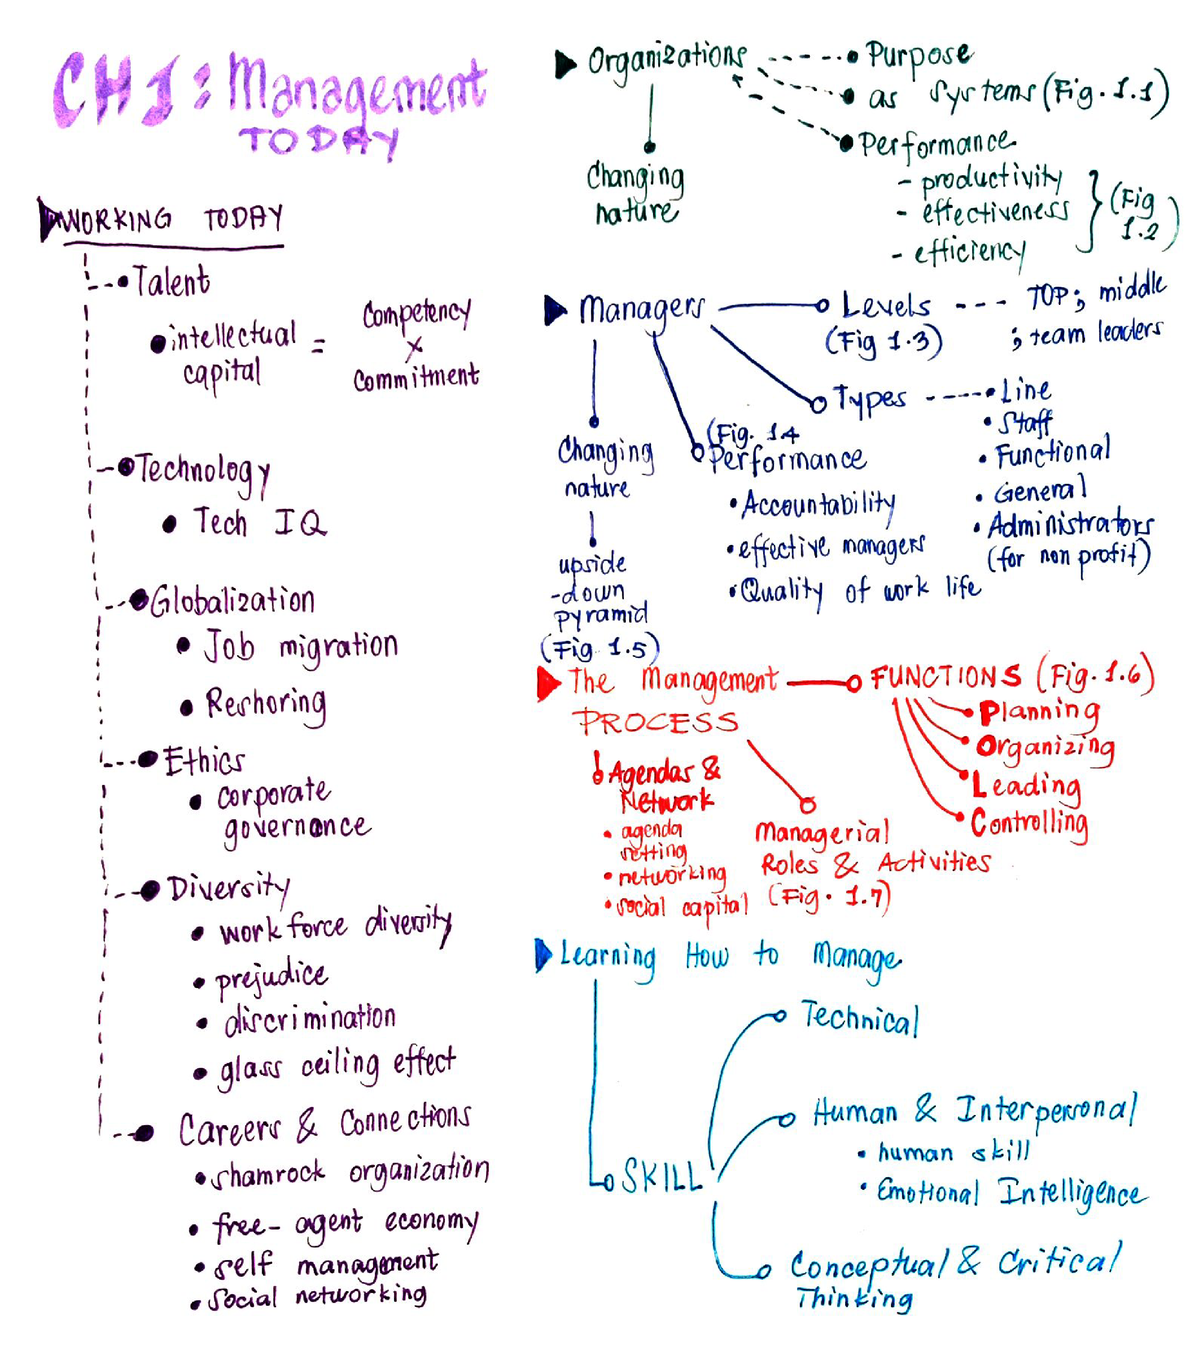 CH1: Management
TODAY
WORKING TODAY
Talent
intellectual capital = Competency × Commitment
Technology
Tech IQ
Globalization
Job migration
Reshoring
Ethics
corporate
governance
Diversity
work force diversity
prejudice
discrimination
glass ceiling effect
Careers & Connections
shamrock organization
free-agent economy
self management
social networking
Organizations
Purpose
as systems (Fig. 1.1)
Performance
- productivity
- effectiveness
- efficiency
(Fig 1.2)
Changing
nature
Managers
Levels --- TOP; middle
(Fig 1.3) ; team leaders
Types
Line
Staff
Functional
General
Administrators
(for non profit)
(Fig. 1.4
Performance
Accountability
effective managers
Quality of work life
Changing
nature
upside
-down
pyramid
(Fig 1.5)
The Management
PROCESS
FUNCTIONS (Fig. 1.6)
Planning
Organizing
Leading
Controlling
Agendas &
Network
agenda
setting
networking
social capital
Managerial
Roles & Activities
(Fig. 1.7)
Learning How to Manage
SKILL
Technical
Human & Interpersonal
human skill
Emotional Intelligence
Conceptual & Critical
Thinking